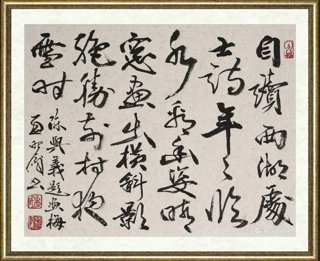 自讀西湖處
士詩年々臨
水看幽姿晴
窗畫出橫斜影
絕勝前村夜
雪時
陳與義題畫梅